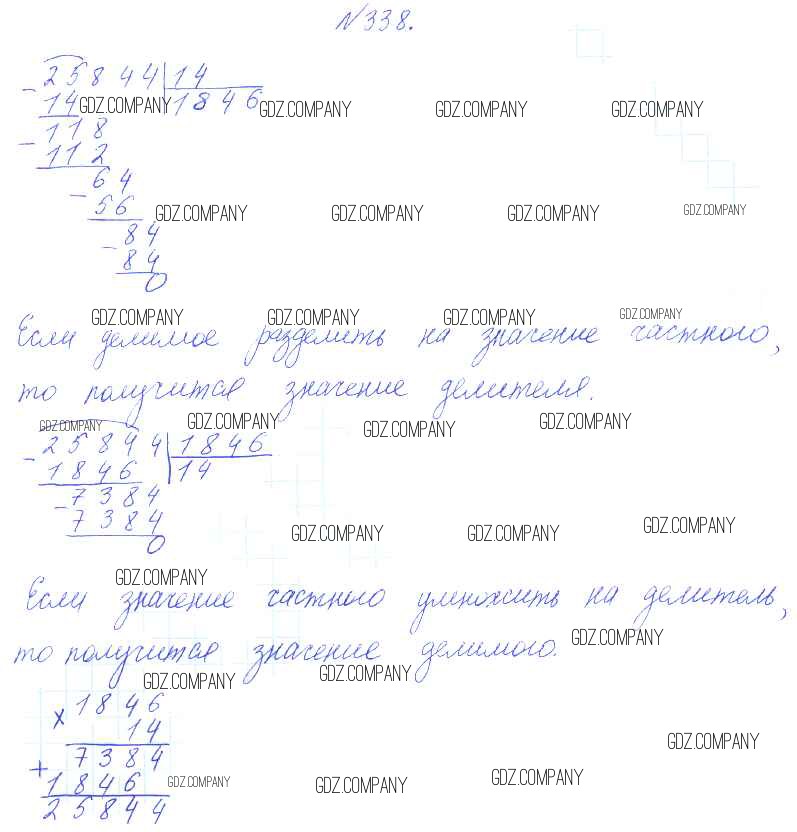 №338.
25844 | 14
14 GDZ.COMPANY 1846 GDZ.COMPANY GDZ.COMPANY GDZ.COMPANY
- 118
112
- 64
56 GDZ.COMPANY GDZ.COMPANY GDZ.COMPANY GDZ.COMPANY
- 84
84
0
GDZ.COMPANY GDZ.COMPANY GDZ.COMPANY GDZ.COMPANY
Если делимое разделить на значение частного,
то получится значение делителя.
GDZ.COMPANY GDZ.COMPANY GDZ.COMPANY GDZ.COMPANY
- 25844 | 1846
1846 | 14
- 7384
7384
0
GDZ.COMPANY GDZ.COMPANY GDZ.COMPANY
GDZ.COMPANY
Если значение частного умножить на делитель,
то получится значение делимого.
GDZ.COMPANY
GDZ.COMPANY GDZ.COMPANY
× 1846
14
+ 7384
GDZ.COMPANY
1846 GDZ.COMPANY GDZ.COMPANY GDZ.COMPANY
25844